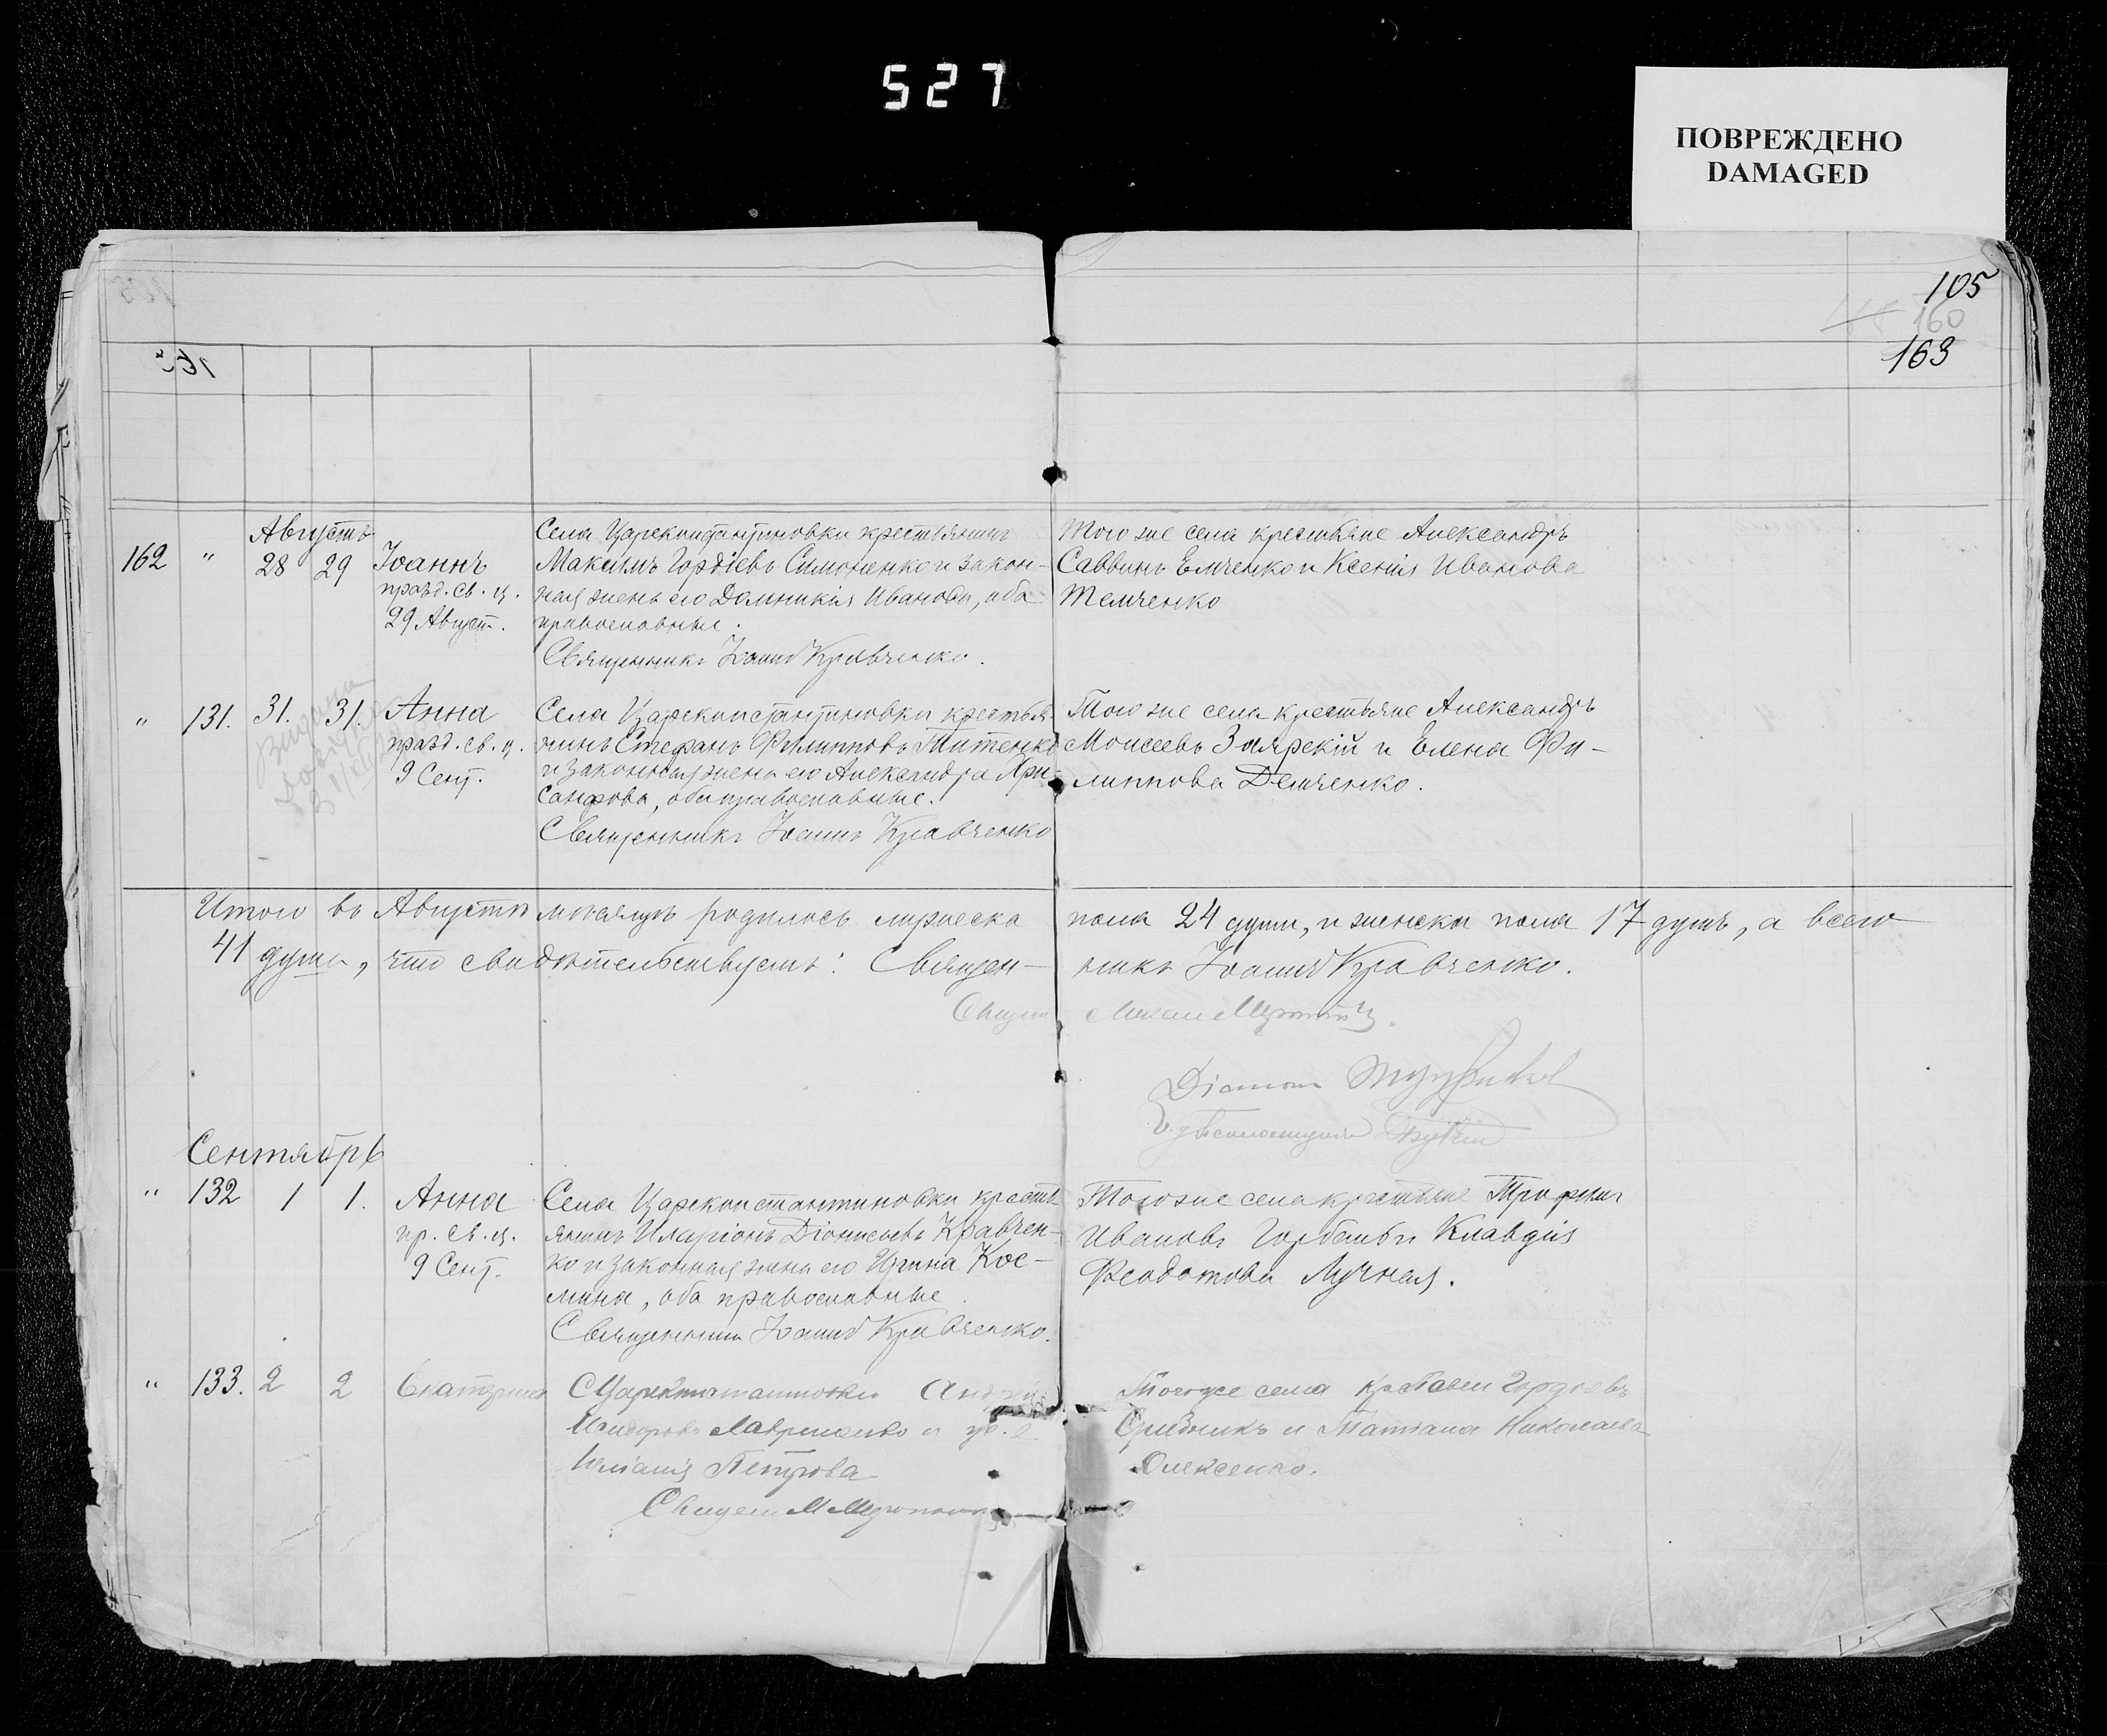 527
ПОВРЕЖДЕНО
DAMAGED
105
160
163
Августъ
162 " 28 29 Іоаннъ
празд. св. ц.
29 Август.
Села Цареконстантиновки крестьянинъ
Максимъ Гордіевъ Симоненко и закон-
ная жена его Домникія Иванова, оба
православные.
Священникъ Іоаннъ Кравченко.
Того же села крестьяне Александръ
Саввинъ Емченко и Ксенія Иванова
Темченко
" 131. 31. 31. Анна
празд. св. ц.
9 Сент.
Села Цареконстантиновки крестья-
нинъ Стефанъ Филипповъ Титенко
и законная жена его Александра Хри-
санфова, оба православные.
Священникъ Іоаннъ Кравченко
Того же села крестьяне Александръ
Моисеевъ Заярскій и Елена Фи-
липпова Демченко.
Итого въ Августѣ мѣсяцѣ родилось мужеска пола 24 души, и женска пола 17 душъ, а всего
41 душа, что свидѣтельствуемъ: Священ- никъ Іоаннъ Кравченко.
Діаконъ
Сентябрь
" 132 1 1. Анна
пр. св. ц.
9 Сент.
Села Цареконстантиновки кресть-
янинъ Иларіонъ Діонисіевъ Кравчен-
ко и законная жена его Ирина Кос-
мина, оба православные.
Священникъ Іоаннъ Кравченко.
Того же села крестьяне Трофимъ
Ивановъ Горбань и Клавдія
Феодотова Лучная.
" 133. 2 2 Екатерина
С Цареконстантиновки Андрей
Исидоровъ Лавриненко и
Юліанія Петрова
Священ М
Того же села кр Павел Гордіевъ
и Татіана Николаева
Олексенко.